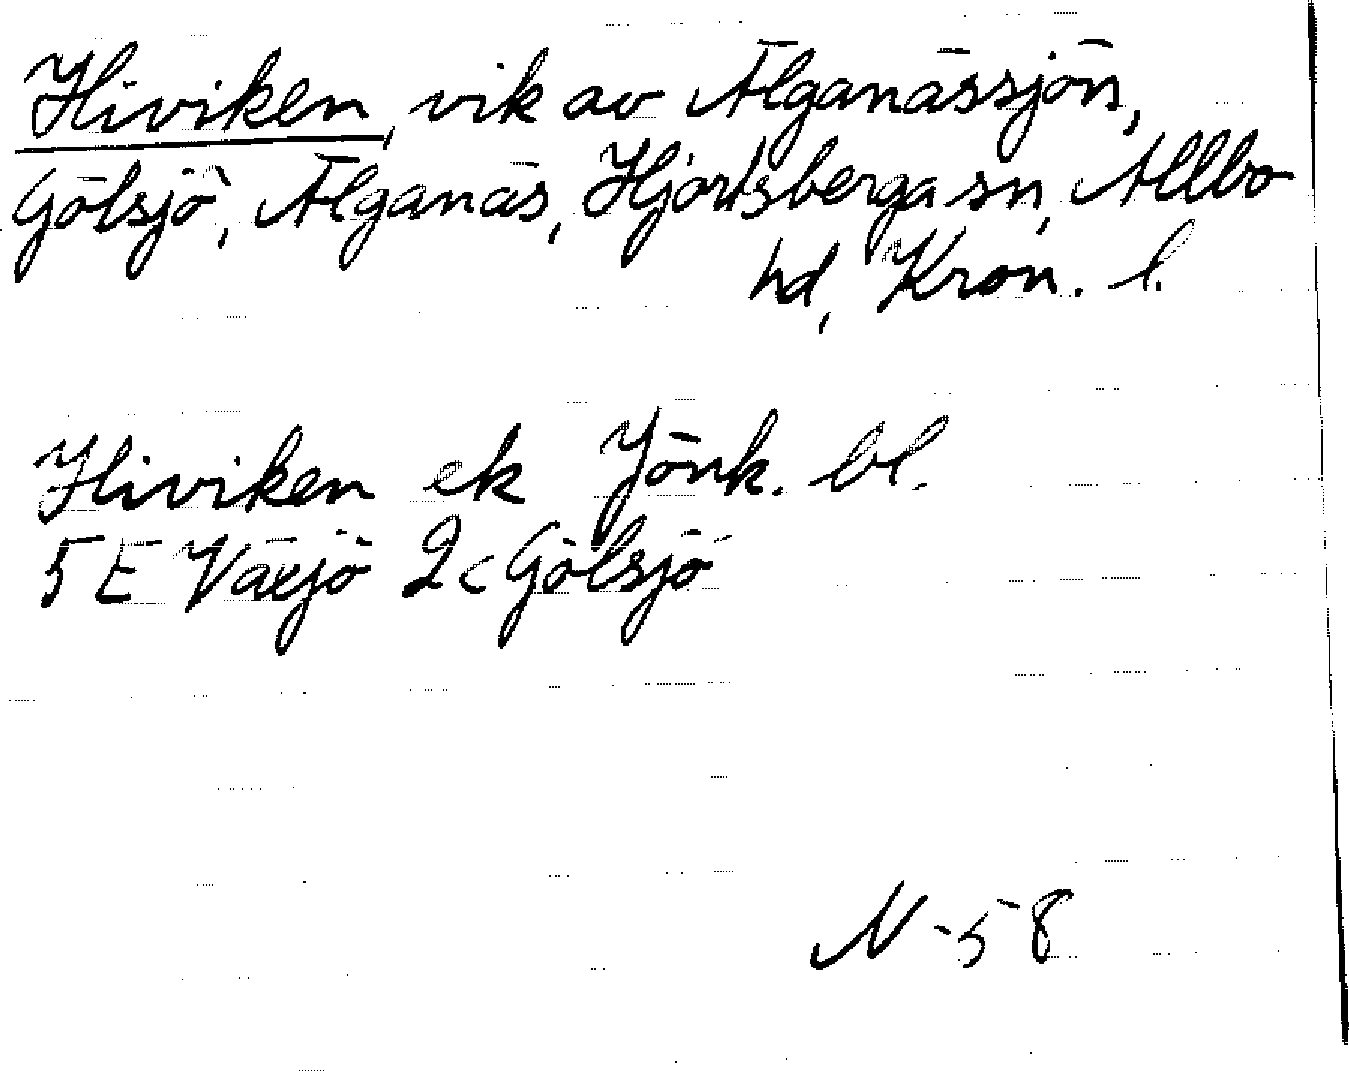 Hiviken, vik av Älganässjön,
Gölsjö, Älganäs, Hjortsberga sn, Allbo
hd, Kron. l.
Hiviken ek Jönk. bl.
5 E Växjö 2c Gölsjö
N-58